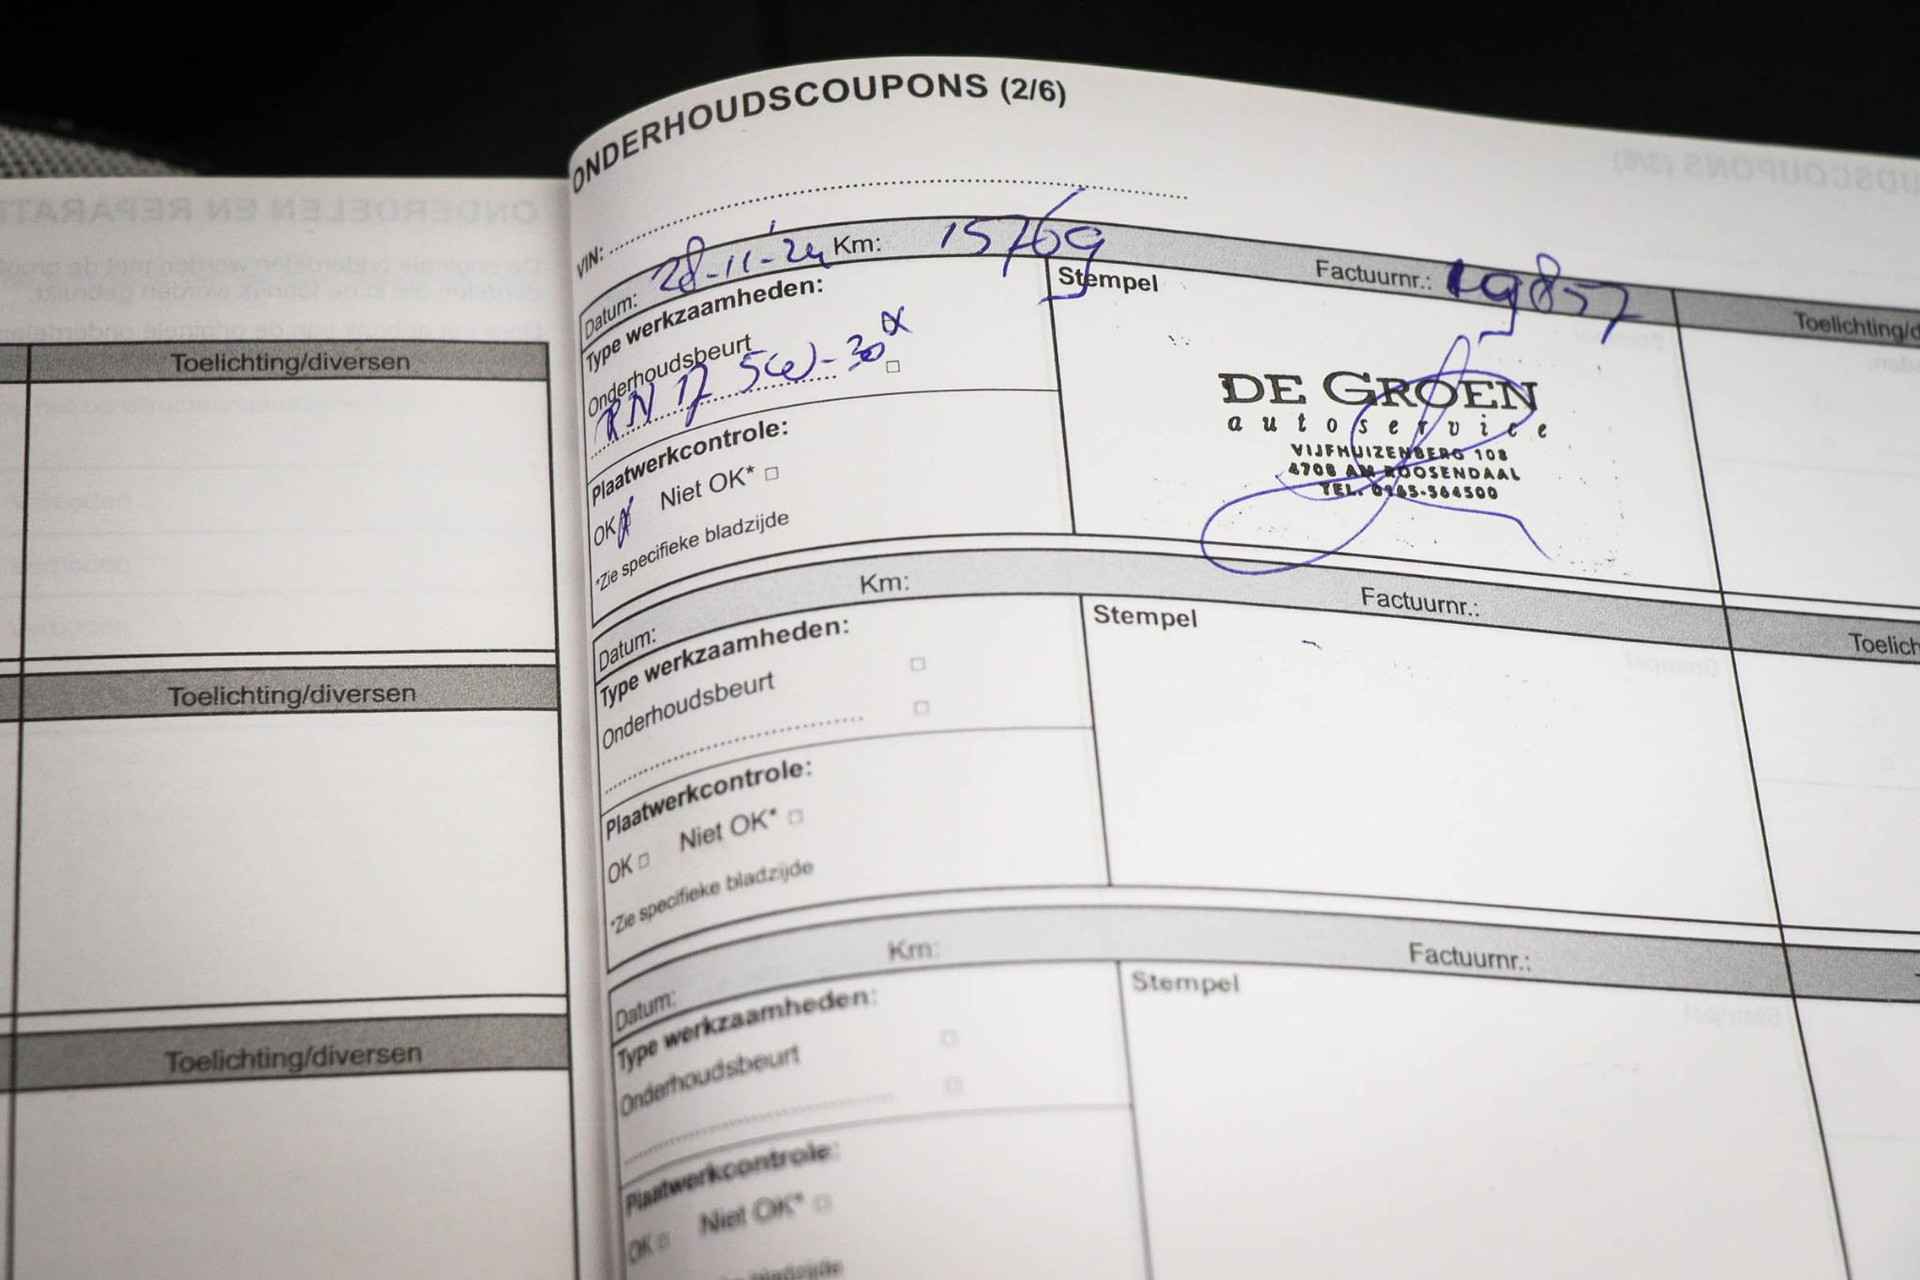 ONDERHOUDSCOUPONS (2/6)
VIN:
Datum: 28-11-'24 Km: 15769 Factuurnr.: 19857
Type werkzaamheden:
Onderhoudsbeurt
RN 17 5W-30
Plaatwerkcontrole:
OK Niet OK* □
*Zie specifieke bladzijde
Stempel
DE GROEN
autoservice
VIJFHUIZENBERG 108
4708 AM ROOSENDAAL
TEL. 0165-564500
Toelichting/d
Datum: Km: Factuurnr.:
Type werkzaamheden:
Onderhoudsbeurt □
□
Plaatwerkcontrole:
OK □ Niet OK* □
*Zie specifieke bladzijde
Stempel
Toelich
Datum: Km: Factuurnr.:
Type werkzaamheden:
Onderhoudsbeurt □
□
Plaatwerkcontrole:
OK □ Niet OK* □
bladzijde
Stempel
Toelichting/diversen
Toelichting/diversen
Toelichting/diversen